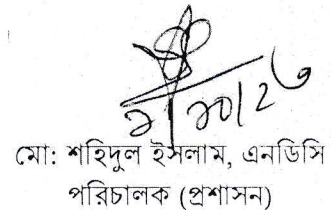 মো: শহিদুল ইসলাম, এনডিসি
পরিচালক (প্রশাসন)